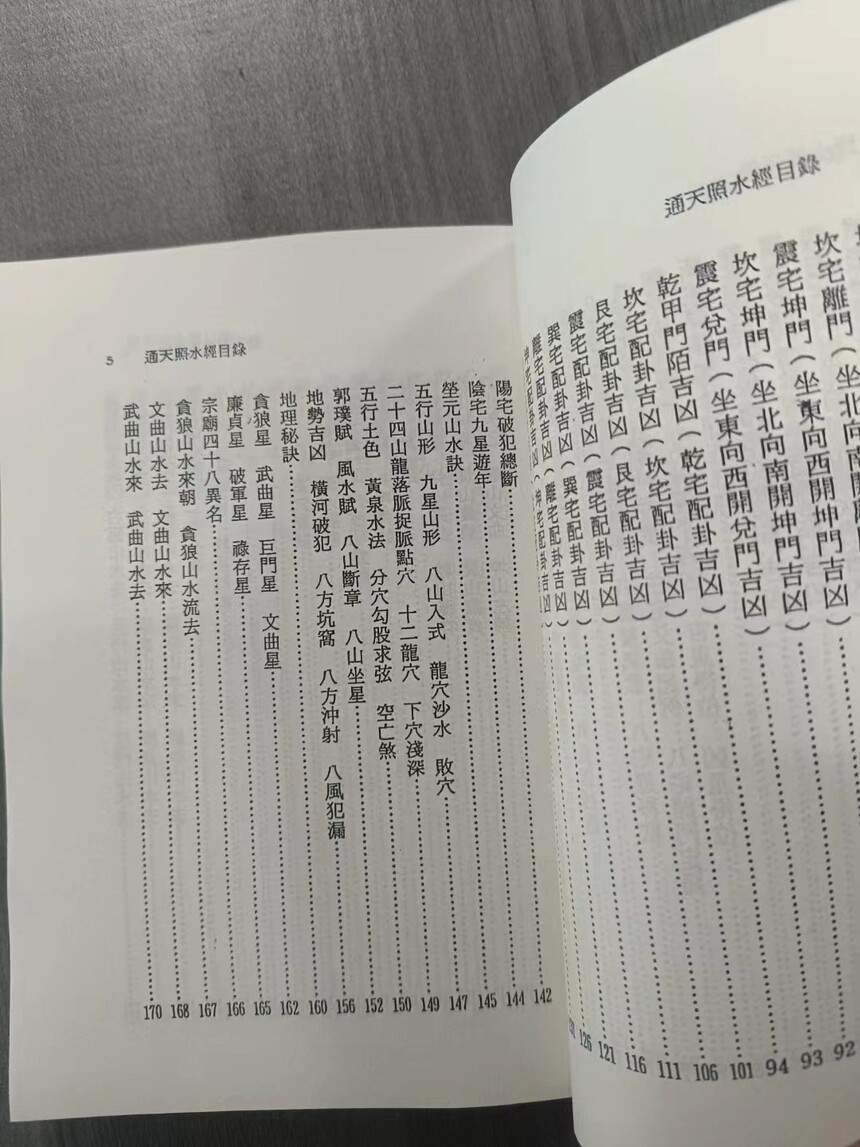 通天照水經目錄
坎宅離門（坐北
震宅坤門（坐東向西開坤門吉凶）⋯⋯92
坎宅坤門（坐北向南開坤門吉凶）⋯⋯93
震宅兌門（坐東向西開兌門吉凶）⋯⋯94
乾甲門陌吉凶（乾宅配卦吉凶）⋯⋯101
坎宅配卦吉凶（坎宅配卦吉凶）⋯⋯106
艮宅配卦吉凶（艮宅配卦吉凶）⋯⋯111
震宅配卦吉凶（震宅配卦吉凶）⋯⋯116
巽宅配卦吉凶（巽宅配卦吉凶）⋯⋯121
離宅配卦吉凶（離宅配卦吉凶）⋯⋯126
坤宅配卦吉凶（坤宅配卦吉凶）
陽宅破犯總斷⋯⋯142
陰宅九星遊年⋯⋯144
滎元山水訣⋯⋯145
五行山形 九星山形 八山入式 龍穴沙水 敗穴⋯⋯147
二十四山龍落脈捉脈點穴 十二龍穴 下穴淺深⋯⋯149
五行土色 黃泉水法 分穴勾股求弦 空亡煞⋯⋯150
郭璞賦 風水賦 八山斷章 八山坐星⋯⋯152
地勢吉凶 橫河破犯 八方坑窩 八方沖射 八風犯漏⋯⋯156
地理秘訣⋯⋯160
貪狼星 武曲星 巨門星 文曲星⋯⋯162
廉貞星 破軍星 祿存星⋯⋯165
宗廟四十八異名⋯⋯166
貪狼山水來朝 貪狼山水流去⋯⋯167
文曲山水去 文曲山水來⋯⋯168
武曲山水來 武曲山水去⋯⋯170
5 通天照水經目錄